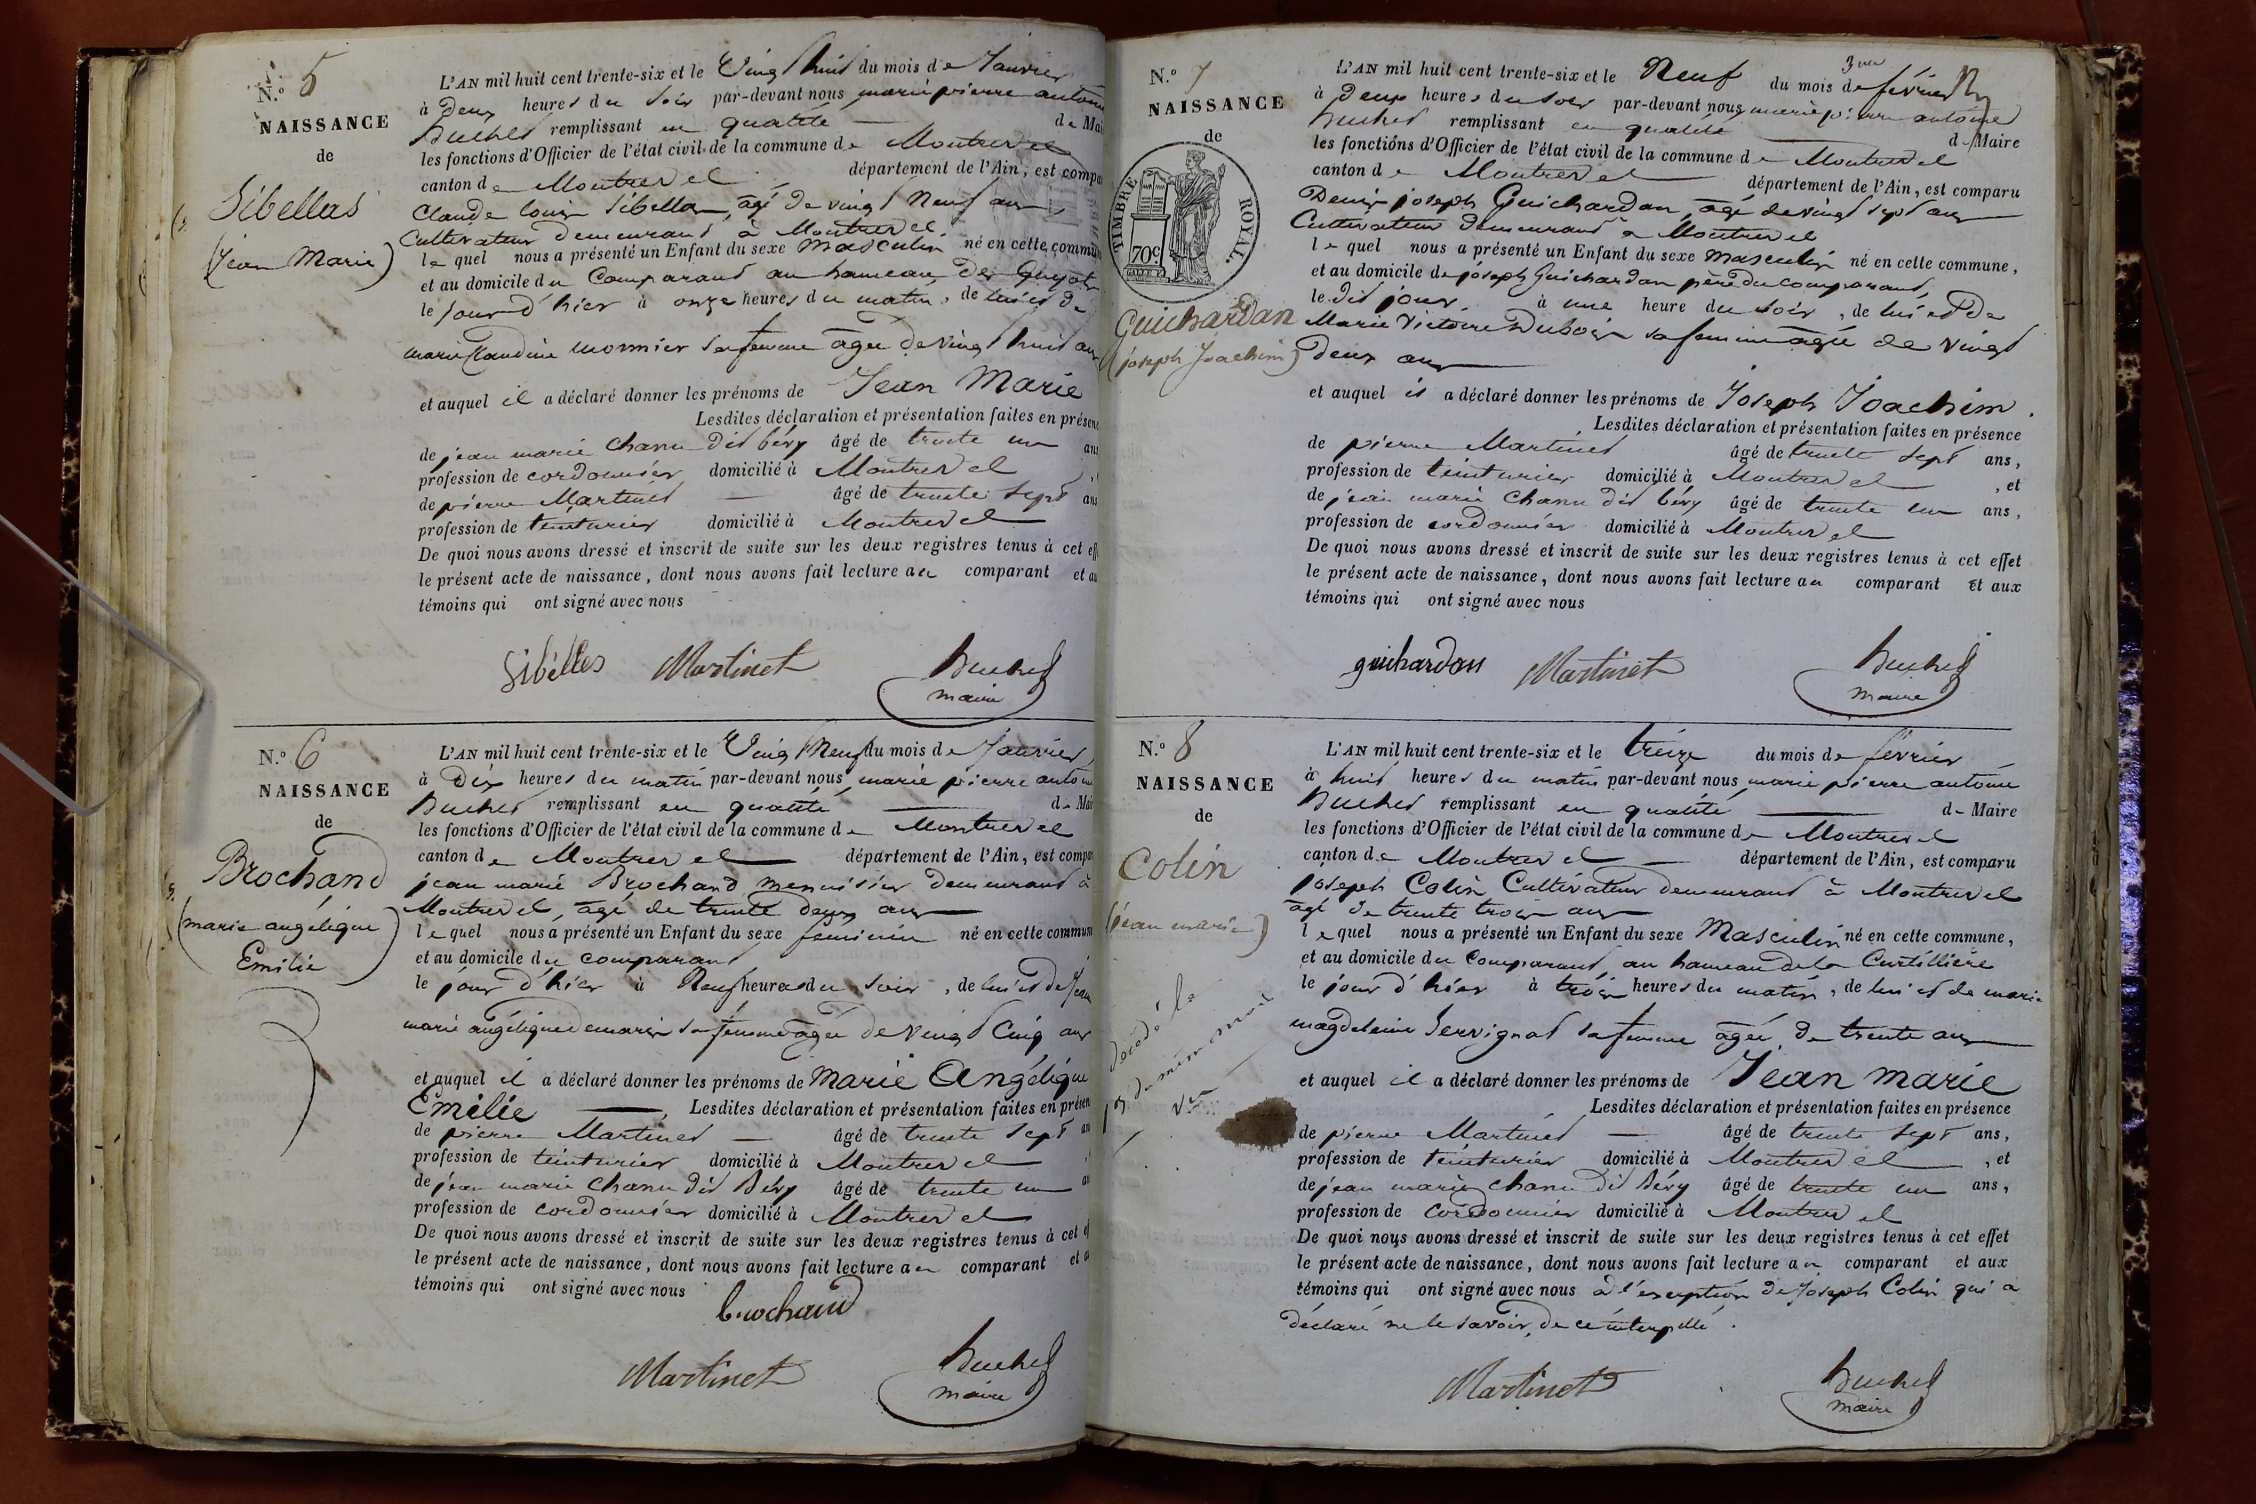 N.º 5
NAISSANCE
de
Sibellas
(Jean Marie)
L'AN mil huit cent trente-six et le Vingt huit du mois de Janvier
à Deux heures du soir par-devant nous marie pierre antoine
Buchet remplissant en qualité de Mai
les fonctions d'Officier de l'état civil de la commune de Montrevel
canton de Montrevel département de l'Ain, est compa
Claude louis Sibellas, agé de vingt Neuf ans,
Cultivateur demeurant à Montrevel
lequel nous a présenté un Enfant du sexe masculin né en cette commun
et au domicile du Comparant au hameau des Guyots
le jour d'hier à onze heures du matin, de lui et de
marie Claudine monnier sa femme agée de vingt huit ans
et auquel il a déclaré donner les prénoms de Jean Marie
Lesdites déclaration et présentation faites en présenc
de jean marie Chanu dit béry âgé de trente un ans
profession de cordonnier domicilié à Montrevel
de pierre Martinet âgé de trente sept ans
profession de teinturier domicilié à Montrevel
De quoi nous avons dressé et inscrit de suite sur les deux registres tenus à cet eff
le présent acte de naissance, dont nous avons fait lecture au comparant et au
témoins qui ont signé avec nous
Sibellas Martinet Buchet
maire
N.º 6
NAISSANCE
de
Brochand
(marie angélique
Emélie)
L'AN mil huit cent trente-six et le Vingt Neuf du mois de Janvier
à Dix heures du matin par-devant nous marie pierre antoine
Buchet remplissant en qualité de Mair
les fonctions d'Officier de l'état civil de la commune de Montrevel
canton de Montrevel département de l'Ain, est compar
jean marie Brochand menuisier demeurant à
Montrevel, agé de trente deux ans
lequel nous a présenté un Enfant du sexe féminin né en cette commune
et au domicile du comparant
le jour d'hier à Neuf heures du soir, de lui et de Jeanne
marie angélique demarin sa femme agée de vingt Cinq ans
et auquel il a déclaré donner les prénoms de Marie Angélique
Emélie, Lesdites déclaration et présentation faites en présen
de pierre Martinet âgé de trente sept an
profession de teinturier domicilié à Montrevel
de jean marie Chanu dit Béry âgé de trente un an
profession de cordonnier domicilié à Montrevel
De quoi nous avons dressé et inscrit de suite sur les deux registres tenus à cet ef
le présent acte de naissance, dont nous avons fait lecture au comparant et a
témoins qui ont signé avec nous
brochand
Martinet Buchet
maire
N.º 7
NAISSANCE
de
TIMBRE ROYAL.
70c
Guichardan
(joseph Joachim)
L'AN mil huit cent trente-six et le Neuf du mois de février
à deux heures du soir par-devant nous marie pierre antoine
Buchet remplissant en qualité de Maire
les fonctions d'Officier de l'état civil de la commune de Montrevel
canton de Montrevel département de l'Ain, est comparu
Denis joseph Guichardan, agé de vingt sept ans
Cultivateur demeurant à Montrevel
lequel nous a présenté un Enfant du sexe masculin né en cette commune,
et au domicile de joseph Guichardan père du comparant,
le dit jour à une heure du soir, de lui et de
Marie Victoire Dubois sa femme agée de vingt
deux ans
et auquel il a déclaré donner les prénoms de Joseph Joachim.
Lesdites déclaration et présentation faites en présence
de pierre Martinet âgé de trente sept ans,
profession de teinturier domicilié à Montrevel, et
de jean marie Chanu dit béry âgé de trente un ans,
profession de cordonnier domicilié à Montrevel
De quoi nous avons dressé et inscrit de suite sur les deux registres tenus à cet effet
le présent acte de naissance, dont nous avons fait lecture au comparant et aux
témoins qui ont signé avec nous
guichardan Martinet Buchet
maire
N.º 8
NAISSANCE
de
Colin
(jean marie)
décédé le
L'AN mil huit cent trente-six et le treize du mois de février
à huit heures du matin par-devant nous marie pierre antoine
Buchet remplissant en qualité de Maire
les fonctions d'Officier de l'état civil de la commune de Montrevel
canton de Montrevel département de l'Ain, est comparu
joseph Colin Cultivateur demeurant à Montrevel
agé de trente trois ans
lequel nous a présenté un Enfant du sexe Masculin né en cette commune,
et au domicile du Comparant, au hameau de la Curtillière
le jour d'hier à trois heures du matin, de lui et de marie
magdeleine Servignat sa femme agée de trente ans
et auquel il a déclaré donner les prénoms de Jean marie
Lesdites déclaration et présentation faites en présence
de pierre Martinet âgé de trente sept ans,
profession de teinturier domicilié à Montrevel, et
de jean marie Chanu dit Béry âgé de trente un ans,
profession de cordonnier domicilié à Montrevel
De quoi nous avons dressé et inscrit de suite sur les deux registres tenus à cet effet
le présent acte de naissance, dont nous avons fait lecture au comparant et aux
témoins qui ont signé avec nous à l'exception de Joseph Colin qui a
déclaré ne le savoir, de ce interpellé.
Martinet Buchet
maire